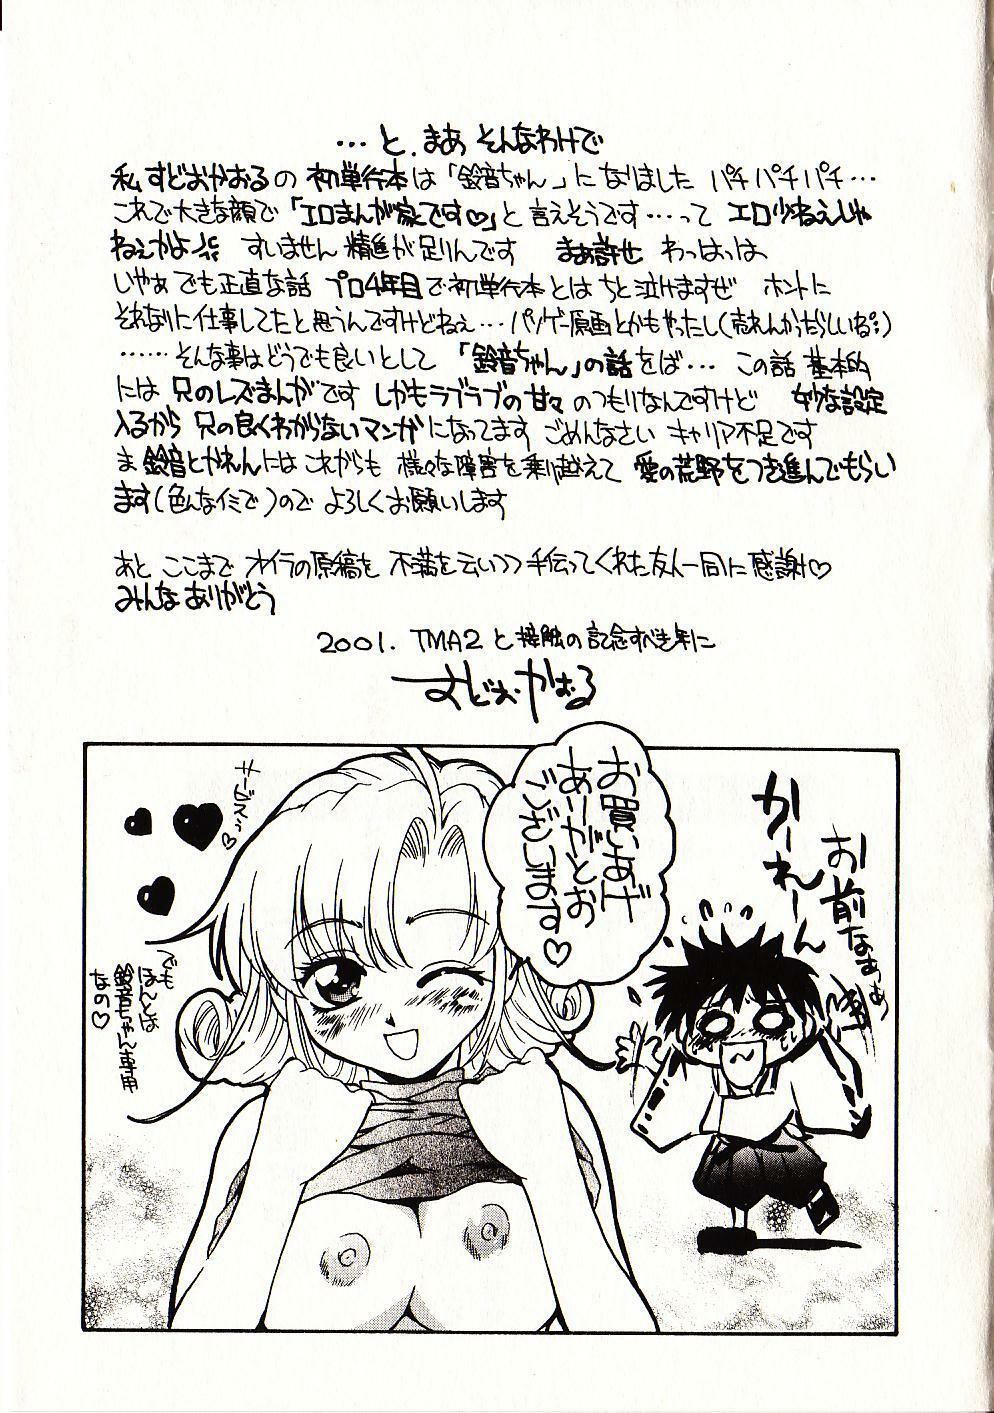 …と、まあ そんなわけで
私 すどおかおるの 初単行本は「鈴音ちゃん」になりました パチパチパチ…
これで大きな顔で「エロまんが家です♡」と言えそうです…って エロ少ねえじゃ
ねぇかよ すいません 精進が足りんです まあ許せ わっはっは
いやぁ でも正直な話 プロ4年目で初単行本とは ちと泣けますぜ ホントに
それなりに仕事してたと思うんですけどねぇ…パソゲー原画とかもやったし(売れんかったらしいね)
……そんな事はどうでも良いとして 「鈴音ちゃん」の話をば… この話 基本的
には 兄のレズまんがです しかもラブラブの甘々 のつもりなんですけど 妙な設定
入るから 兄の良くわからないマンガになってます ごめんなさい キャリア不足です
ま 鈴音とかれんには これからも 様々な障害を乗り越えて 愛の荒野をつき進んでもらい
ます(色んなイミで)ので よろしくお願いします
あと ここまで オイラの原稿を 不満を云いつつ手伝ってくれた友人一同に 感謝♡
みんなありがとう
2001. TMA2 と接触の記念すべき年に
すどお・かおる
お買いあげ
ありがとお
ございます♡
サービスっ♡
でも
ほんとは
鈴音ちゃん専用
なの♡
かーれーん
お前なぁぁ